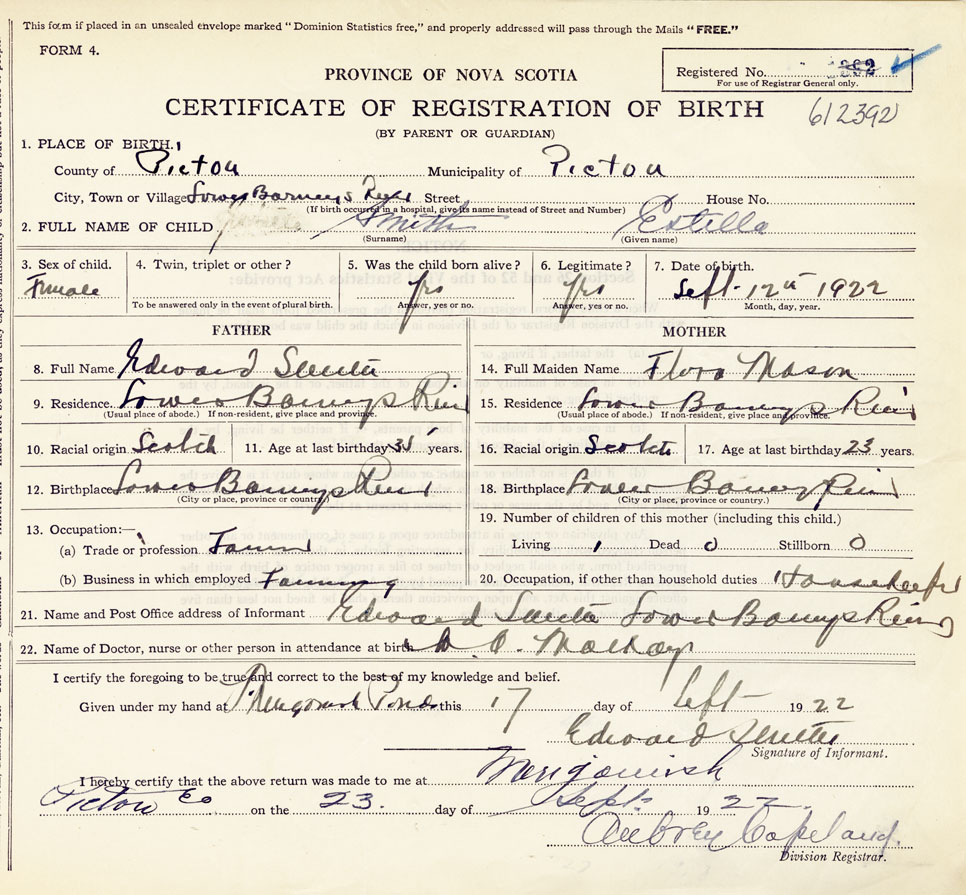 This form if placed in an unsealed envelope marked "Dominion Statistics free," and properly addressed will pass through the Mails "FREE."
FORM 4.
Registered No. 362
For use of Registrar General only.
PROVINCE OF NOVA SCOTIA
CERTIFICATE OF REGISTRATION OF BIRTH
612392
(BY PARENT OR GUARDIAN)
1. PLACE OF BIRTH.
County of Pictou Municipality of Pictou
City, Town or Village Lower Barneys River Street House No.
(If birth occurred in a hospital, give its name instead of Street and Number)
2. FULL NAME OF CHILD Smith Estella
(Surname) (Given name)
3. Sex of child. 4. Twin, triplet or other? 5. Was the child born alive? 6. Legitimate? 7. Date of birth.
Female Yes Yes Sept. 12th 1922
To be answered only in the event of plural birth. Answer, yes or no. Answer, yes or no. Month, day, year.
FATHER MOTHER
8. Full Name Edward Smith 14. Full Maiden Name Flora Mason
9. Residence. Lower Barneys River 15. Residence Lower Barneys River
(Usual place of abode.) If non-resident, give place and province. (Usual place of abode.) If non-resident, give place and province.
10. Racial origin Scotch 11. Age at last birthday 35 years. 16. Racial origin Scotch 17. Age at last birthday 23 years.
12. Birthplace Lower Barneys River 18. Birthplace Lower Barneys River
(City or place, province or country.) (City or place, province or country.)
13. Occupation:— 19. Number of children of this mother (including this child.)
(a) Trade or profession Farmer Living 1 Dead 0 Stillborn 0
(b) Business in which employed Farming 20. Occupation, if other than household duties Housekeeper
21. Name and Post Office address of Informant Edward Smith Lower Barneys River
22. Name of Doctor, nurse or other person in attendance at birth
I certify the foregoing to be true and correct to the best of my knowledge and belief.
Given under my hand at Merigomish Ponds this 17 day of Sept 1922
Edward Smith
Signature of Informant.
I hereby certify that the above return was made to me at Merigomish
Pictou Co on the 23. day of Sept. 1922.
Aubrey Copeland.
Division Registrar.